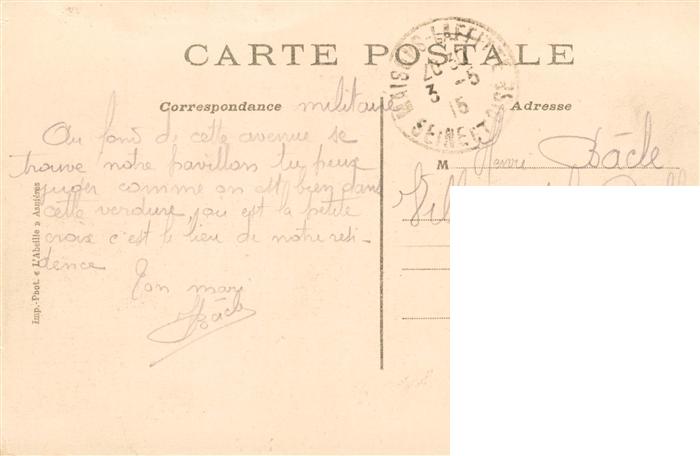 CARTE POSTALE
Correspondance militaire
Adresse
MAISONS-LAFFITTE
SEINE ET OISE
Au fond de cette avenue se
trouve notre pavillon tu peux
juger comme on est bien dans
cette verdure, ou est la petite
croix c'est le lieu de notre resi-
dence
Ton mari
HBâcle
M Henri Bâcle
Imp.-Phot. « L'Abeille » Asnières